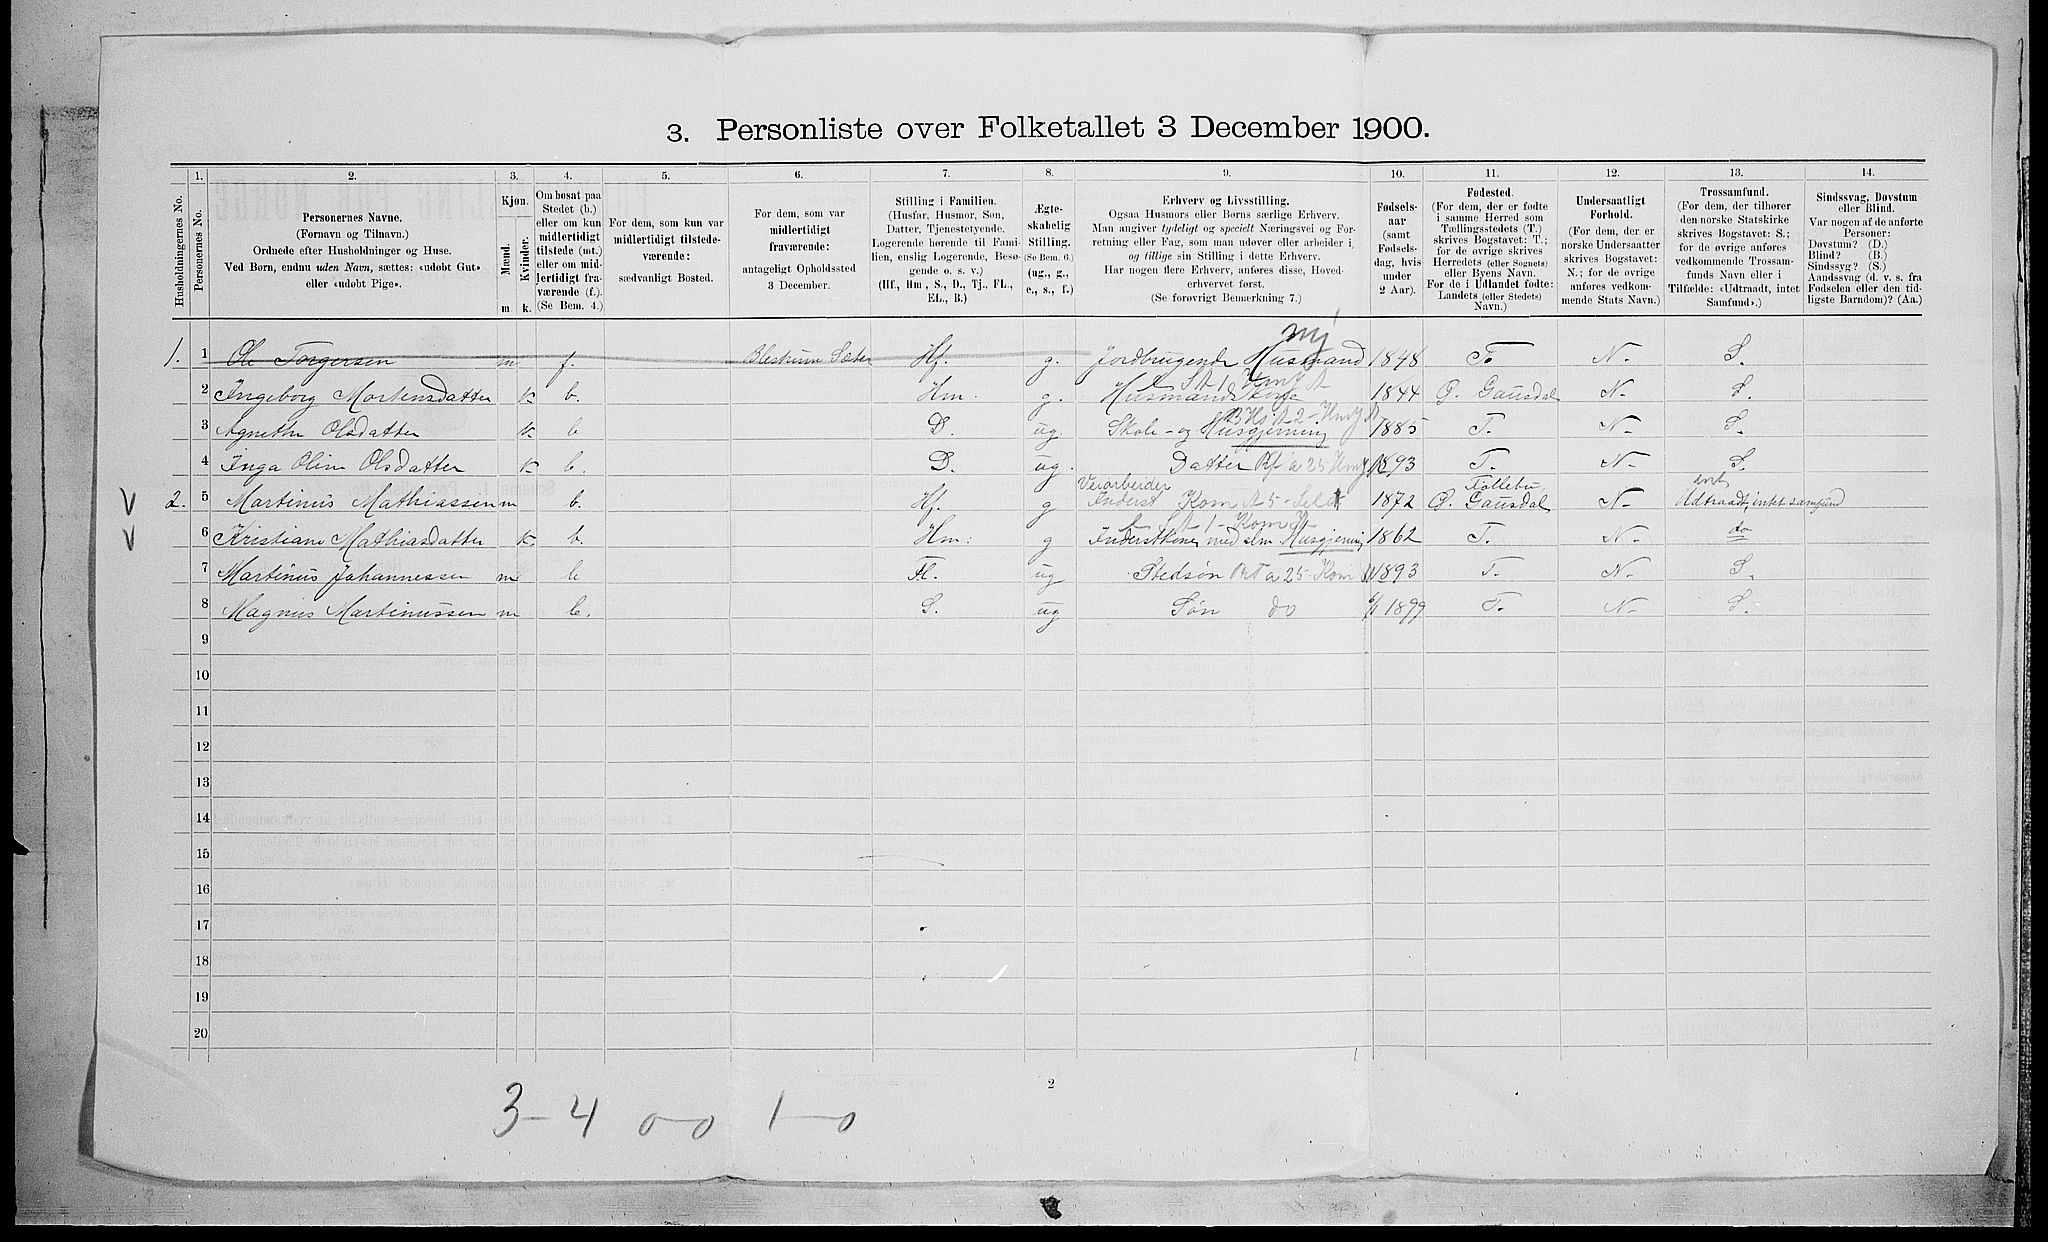 3. Personliste over Folketallet 3 December 1900.
1. 2. 3. 4. 5. 6. 7. 8. 9. 10. 11. 12. 13. 14.
Husholdningernes No.
Personernes No.
Personernes Navne.
(Fornavn og Tilnavn.)
Ordnede efter Husholdninger og Huse.
Ved Børn, endnu uden Navn, sættes: «udøbt Gut»
eller «udøbt Pige».
Kjøn.
Mænd.
Kvinder.
m. k.
Om bosat paa
Stedet (b.)
eller om kun
midlertidigt
tilstede (mt.)
eller om mid-
lertidigt fra-
værende (f.).
(Se Bem. 4.)
For dem, som kun var
midlertidigt tilstede-
værende:
sædvanligt Bosted.
For dem, som var
midlertidigt
fraværende:
antageligt Opholdssted
3 December.
Stilling i Familien.
(Husfar, Husmor, Søn,
Datter, Tjenestetyende,
Logerende hørende til Fami-
lien, enslig Logerende, Besø-
gende o. s. v.)
(Hf., Hm., S., D., Tj., FL.,
EL., B.)
Ægte-
skabelig
Stilling.
(Se Bem. 6.)
(ug., g.,
e., s., f.)
Erhverv og Livsstilling.
Ogsaa Husmors eller Børns særlige Erhverv.
Man angiver tydeligt og specielt Næringsvei og For-
retning eller Fag, som man udøver eller arbeider i,
og tillige sin Stilling i dette Erhverv.
Har nogen flere Erhverv, anføres disse, Hoved-
erhvervet først.
(Se forøvrigt Bemærkning 7.)
Fødsels-
aar
(samt
Fødsels-
dag, hvis
under
2 Aar).
Fødested.
(For dem, der er fødte
i samme Herred som
Tællingsstedets (T.)
skrives Bogstavet: T.;
for de øvrige skrives
Herredets (eller Sognets)
eller Byens Navn.
For de i Udlandet fødte:
Landets (eller Stedets)
Navn.)
Undersaatligt
Forhold.
(For dem, der er
norske Undersaatter
skrives Bogstavet:
N.; for de øvrige
anføres vedkom-
mende Stats Navn.)
Trossamfund.
(For dem, der tilhører
den norske Statskirke
skrives Bogstavet: S.;
for de øvrige anføres
vedkommende Trossam-
funds Navn eller i
Tilfælde: «Udtraadt, intet
Samfund».)
Sindssvag, Døvstum
eller Blind.
Var nogen af de anførte
Personer:
Døvstum? (D.)
Blind? (B.)
Sindssyg? (S.)
Aandssvag (d. v. s. fra
Fødselen eller den tid-
ligste Barndom)? (Aa.)
1. 1 Ole Torgersen m f. Sæter Hf. g. Jordbrugende Husmand 1848 T. N. S.
2 Ingeborg Mortensdatter k b. Hm. g. Husmandskone 1844 Ø. Gausdal N. S.
3 Agnethe Olsdatter k. b D. ug Skole- og Husgjerning 1885 T. N. S.
4 Inga Oline Olsdatter k b. D. ug. Datter 1893 T. N. S.
Veiarbeider Follebu,
2. 5 Martinus Mathiassen m b. Hf. g Inderst 1872 Ø. Gausdal N. Udtraadt, intet samfund
6 Kristiane Mathiasdatter k. b. Hm. g Inderstkone med alm. Husgjerning 1862 T. N. do
7 Martinus Johannessen m b Fl. ug Stedsøn 1893 T. N. S.
8 Magnus Martinussen m b. S. ug Søn do 6/1 1899 T. N. S.
9
10
11
12
13
14
15
16
17
18
19
20
2
3-4 0-0 1-0